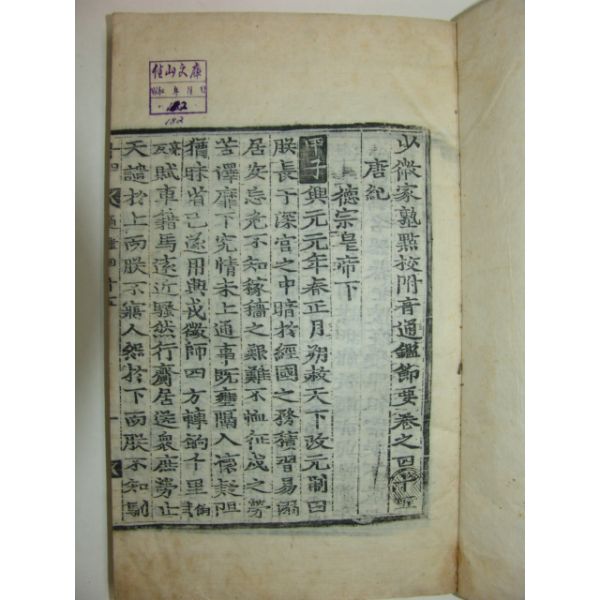 少微家塾點校附音通鑑節要卷之四十五
唐紀
德宗皇帝下
甲子興元元年春正月朔赦天下改元制曰
朕長于深宮之中暗於經國之務積習易溺
居安忘危不知稼穡之艱難不恤征戍之勞
苦澤靡下究情未上通事旣壅隔人懷疑阻
猶昧省己遂用興戎徵師四方轉餉千里
賦車籍馬遠近騷然行齎居送衆庶勞止
天譴於上而朕不寤人怨於下而朕不知馴
文庫
182
182